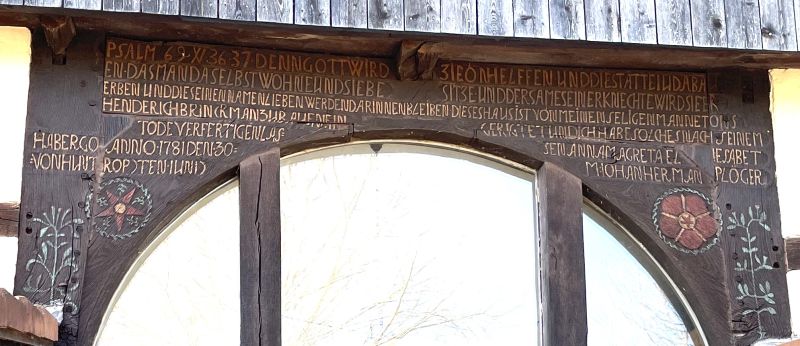 PSALM 69 V 36 37 DENN GOTT WIRD ZIEON HELFFEN UND DIE STÄTTE IUDA BA
EN DAS MAN DASELBST WOHNE UND SIE BE SITZE UND DER SAME SEINER KNECHTE WIRD SIE
ERBEN UND DIE SEINEN NAMEN LIEBEN WERDEN DARINNEN BLEIBEN DIESES HAUS IST VON MEINEN SELIGEN MANNE TONS
HENDERICH BRINCKMAN ZUR AUEN EIN GERIGTET UND ICH HABE SOLCHES NACH SEINEM
TODE VERFERTIGEN LAS SEN ANNA MAGRETA EL IESABET
HABERCO ANNO 1781 DEN 30 M IOHAN HERMAN PLÖGER
VON HUNT ROP STEN IUNI